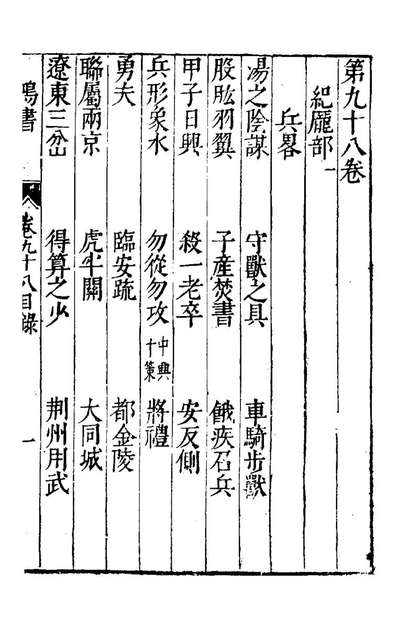 第九十八卷
紀龎部一
兵畧
湯之陰謀 守獸之具 車騎步獸
股肱羽翼 子産焚書 餓疾召兵
甲子日興 殺一老卒 安反側
兵形象水 勿從勿攻 中興十策 將禮
勇夫 臨安疏 都金陵
聯屬兩京 虎牢關 大同城
遼東三岔 得算之少 荆州用武
鴻書 卷九十八目錄 一